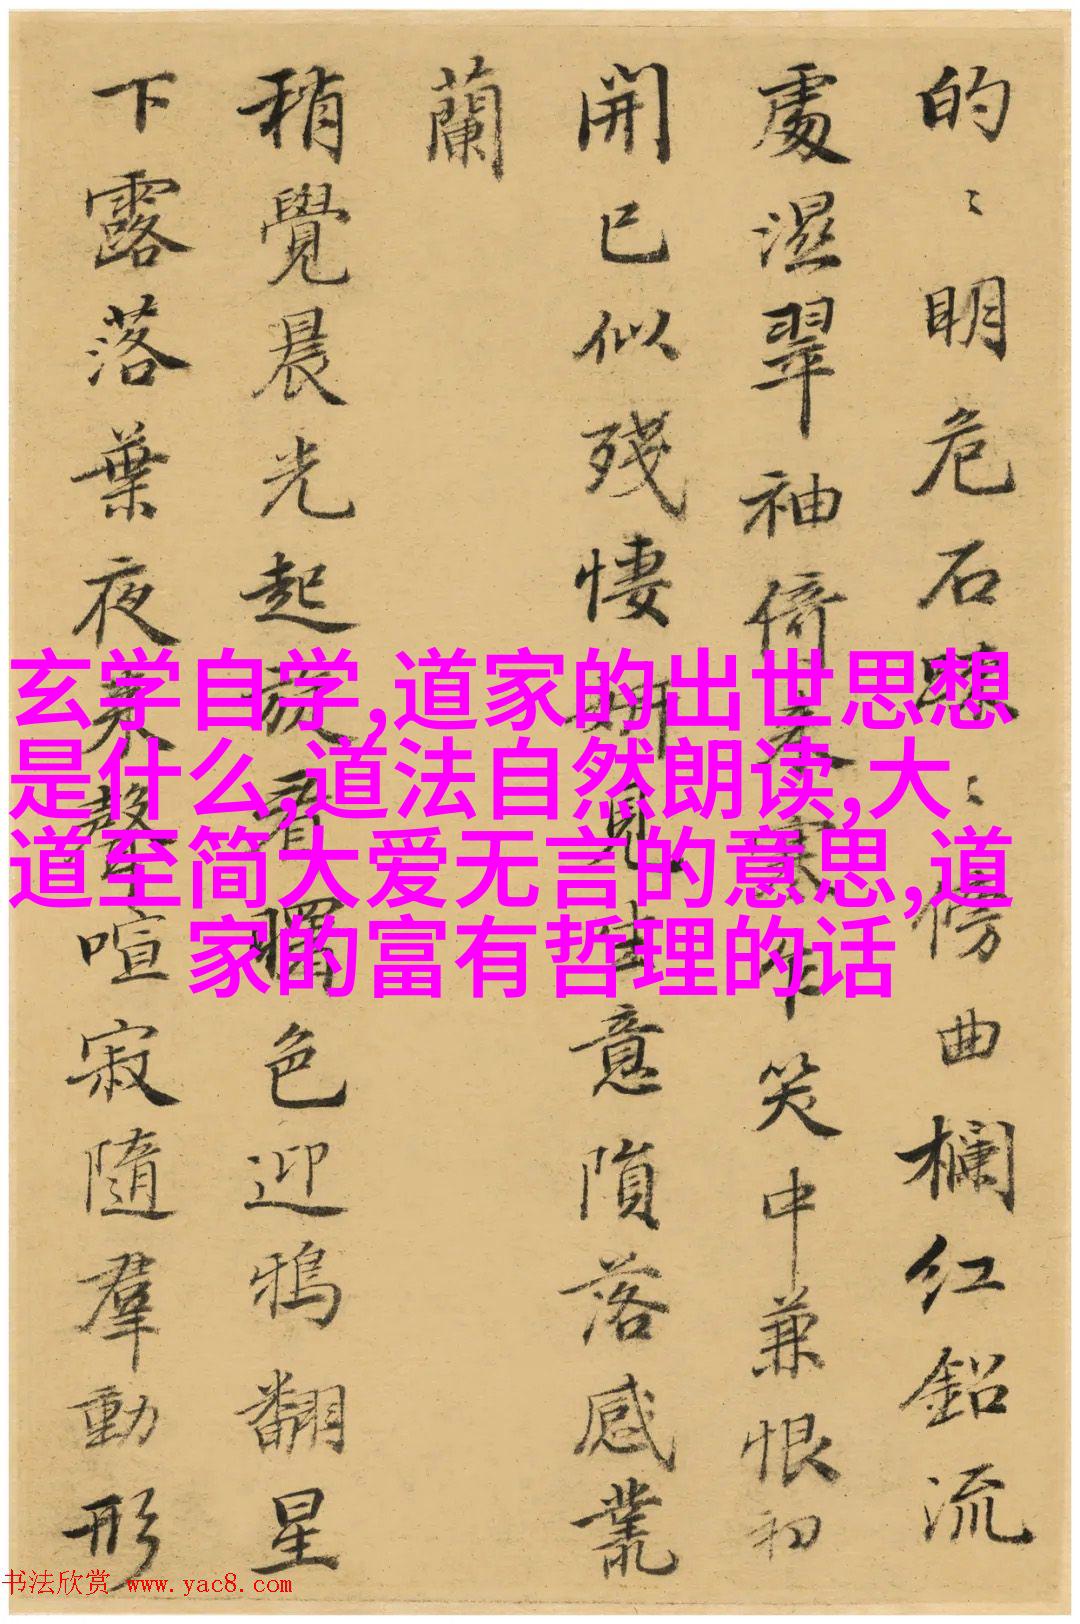 的〻明危石〻傍曲欄紅鉛流
處濕翠袖倚寒乍笑中兼恨初
開已似殘悽妍見生意隕落感叢
蘭
稍覺晨光起旋看曙色迎鴉翻星
下露落葉夜來聲喧寂隨羣動形
玄学自学,道家的出世思想
是什么,道法自然朗读,大
道至简大爱无言的意思,道
家的富有哲理的话
书法欣赏 www.yac8.com